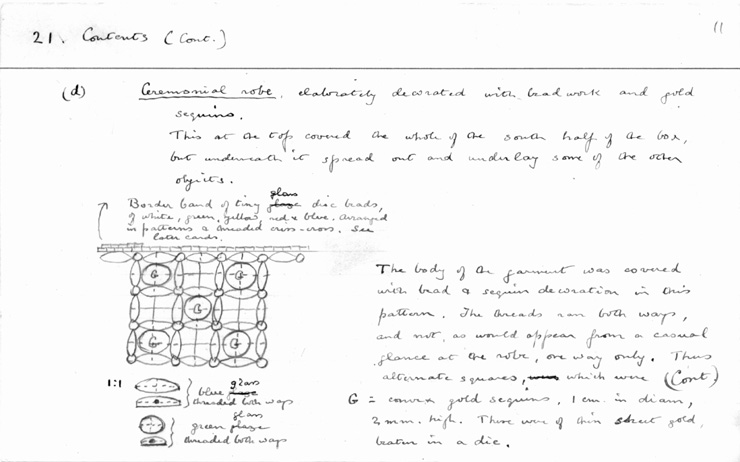 11
21. Contents (Cont.)
(d) Ceremonial robe, elaborately decorated with bead work and gold
sequins.
This at the top covered the whole of the south half of the box,
but underneath it spread out and underlay some of the other
objects.
Border band of tiny glass disc beads,
of white, green, yellow, red & blue. Arranged
in patterns & threaded criss-cross. See
later cards.
G G
G
G G
The body of the garment was covered
with bead & sequin decoration in this
pattern. The threads ran both ways,
and not, as would appear from a casual
glance at the robe, one way only. Thus
alternate squares, which were (Cont)
G = convex gold sequins, 1 cm. in diam,
2 mm. high. These were of thin sheet gold,
beaten in a die.
1:1
glass
blue glaze
threaded both ways
glass
green glaze
threaded both ways